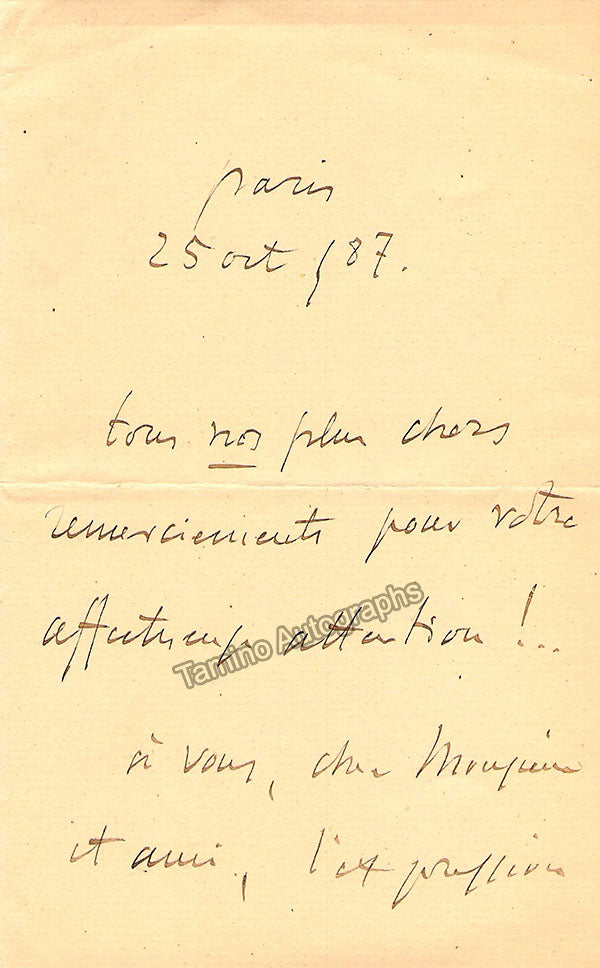 paris
25 oct / 87.
tous nos plus chers
remerciements pour votre
affectueuse attention !..
Tamino Autographs
à vous, cher Monsieur
et ami, l'expression